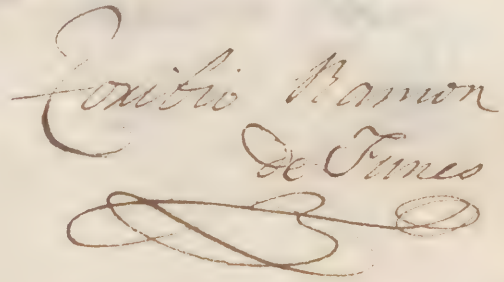 Toxibio Ramon
de Funes